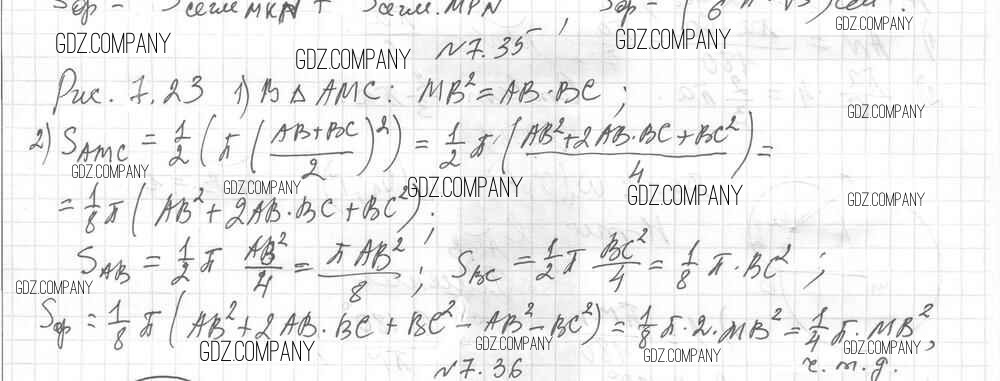 Sф = Sсегм MKN + Sсегм. MPN ; Sф =
GDZ.COMPANY GDZ.COMPANY GDZ.COMPANY GDZ.COMPANY
N7.35
Рис. 7.23 1) В Δ AMC: MB² = AB·BC ;
GDZ.COMPANY
2) S_AMC = 1/2 (π ((AB+BC)/2)²) = 1/2 π ((AB²+2AB·BC+BC²)/4) =
GDZ.COMPANY GDZ.COMPANY GDZ.COMPANY GDZ.COMPANY GDZ.COMPANY
= 1/8 π (AB²+2AB·BC+BC²) ;
S_AB = 1/2 π AB²/4 = πAB²/8 ; S_BC = 1/2 π BC²/4 = 1/8 π·BC² ;
GDZ.COMPANY
Sф = 1/8 π (AB²+2AB·BC+BC²-AB²-BC²) = 1/8 π·2·MB² = 1/4 π·MB²,
GDZ.COMPANY GDZ.COMPANY GDZ.COMPANY GDZ.COMPANY
ч.т.д.
N7.36